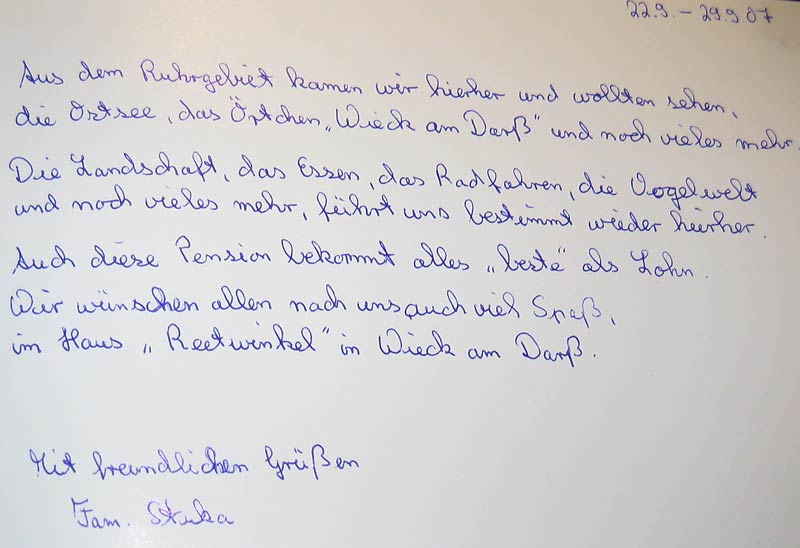 22.9. – 29.9.07
Aus dem Ruhrgebiet kamen wir hierher und wollten sehen,
die Ostsee, das Örtchen „Wieck am Darß" und noch vieles mehr.
Die Landschaft, das Essen, das Radfahren, die Vogelwelt
und noch vieles mehr, führt uns bestimmt wieder hierher.
Auch diese Pension bekommt alles „beste" als Lohn.
Wir wünschen allen nach uns auch viel Spaß,
im Haus „Reetwinkel" in Wieck am Darß.
Mit freundlichen Grüßen
Fam. Stuka